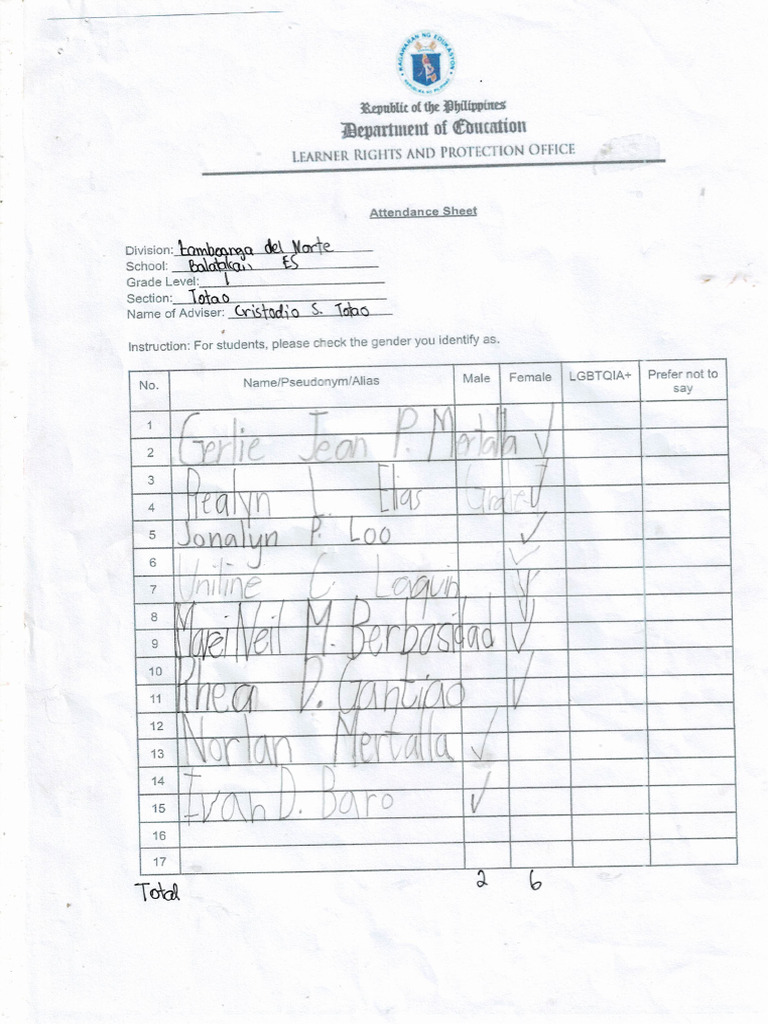 KAGAWARAN NG EDUKASYON
Republic of the Philippines
Department of Education
LEARNER RIGHTS AND PROTECTION OFFICE
Attendance Sheet
Division: Zamboanga del Norte
School: Balatakan ES
Grade Level: 1
Section: Totao
Name of Adviser: Cristodio S. Totao
Instruction: For students, please check the gender you identify as.
No. Name/Pseudonym/Alias Male Female LGBTQIA+ Prefer not to say
1
2 Gerlie Jean P. Mertalla ✓
3
4 Realyn L. Elias Grade ✓
5 Jonalyn P. Loo ✓
6 ✓
7 Uniline C. Laquin ✓
8
9 Neil M. Berbasidad ✓
10
11 Rhea D. Gantiao ✓
12
13 Norlan Mertalla ✓
14
15 Ivan D. Baro ✓
16
17
Total 2 6